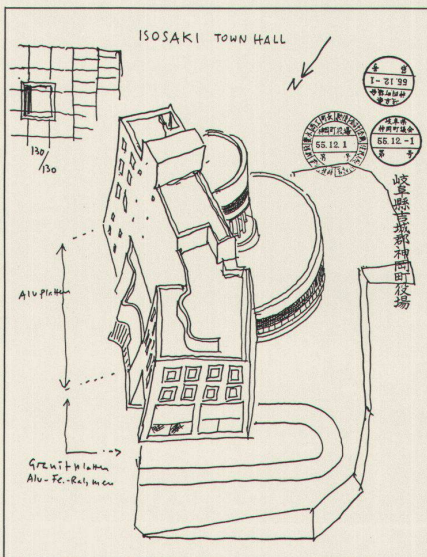 ISOSAKI TOWN HALL
N
130/130
岐阜県
神岡町議会
55.12-1
第 号
神岡町役場
55.12.1
岐阜縣吉城郡神岡町役場
Alu Platten
Granitplatten
Alu-Fe.-Rahmen